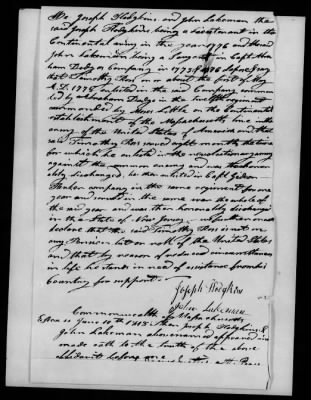 We Joseph Hodgkins and John Lakeman the
said Joseph Hodgkins being a Lieutenant in the
Continental army in the year 1776 and the said
John Lakeman being a Sargent in Capt Abra
ham Dodge Company in 1775 & 1776 depose & say
that Timothy Ross on or about the first of May
A.D. 1775 enlisted in the said Company comman
ded by Abraham Dodge in the twelfth regiment
commanded by Moses Little on the Continental
establishment of the Massachusetts line in the
army of the United States of America and that
said Timothy Ross served eight months the time
for which he enlisted in the revolutionary army
against the common enemy and was then honor
ably discharged. he then enlisted in Capt Gideon
Parker company in the same regiment for one
year and served in the same war the whole of
the said year and was then honorably discharged
in the state of New Jersey we further
declare that the said Timothy Ross is not on
any Pension list or roll of the United States
and that by reason of reduced circumstances
in life he stands in need of assistance from his
Country for support
Joseph Hodgkins
John Lakeman
Commonwealth of Massachusetts
Essex ss June 10th 1818 then Joseph Hodgkins &
John Lakeman abovenamed appeared and
made oath to the truth of the above
affidavits before me